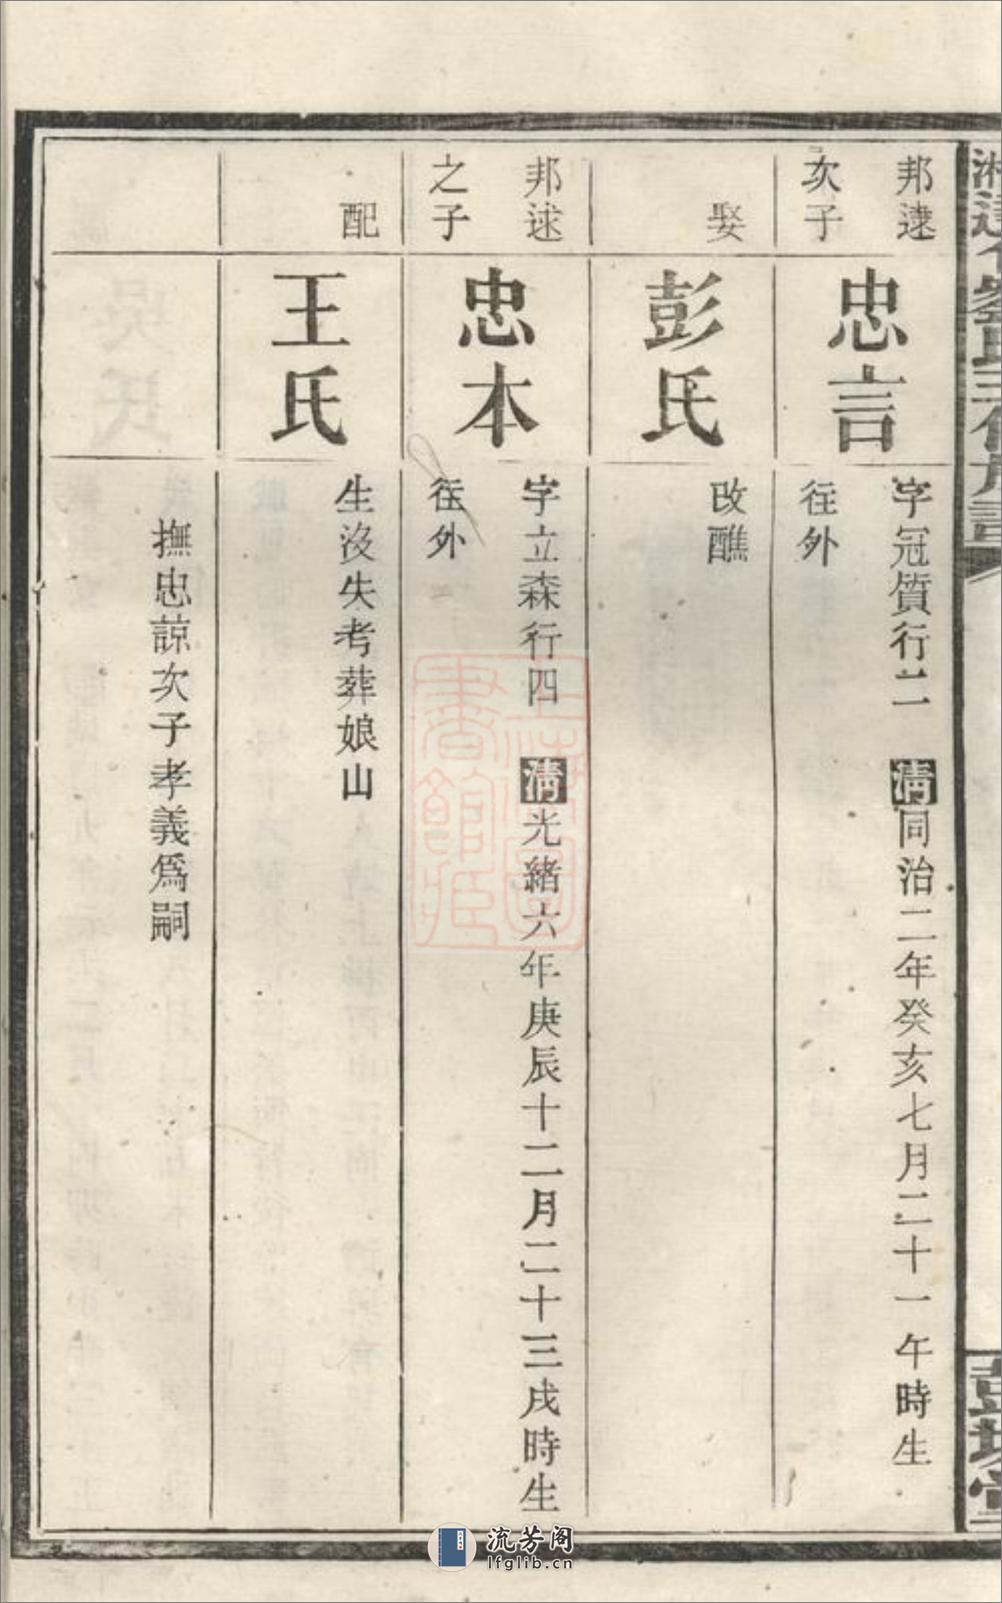 邦逮
次子
忠言
字冠質行二 清同治二年癸亥七月二十一午時生
往外
娶
彭氏
改醮
邦逑
之子
忠本
字立森行四 清光緒六年庚辰十二月二十三戌時生
往外
配
王氏
生沒失考葬娘山
撫忠諒次子孝義爲嗣
流芳阁
lfglib.cn